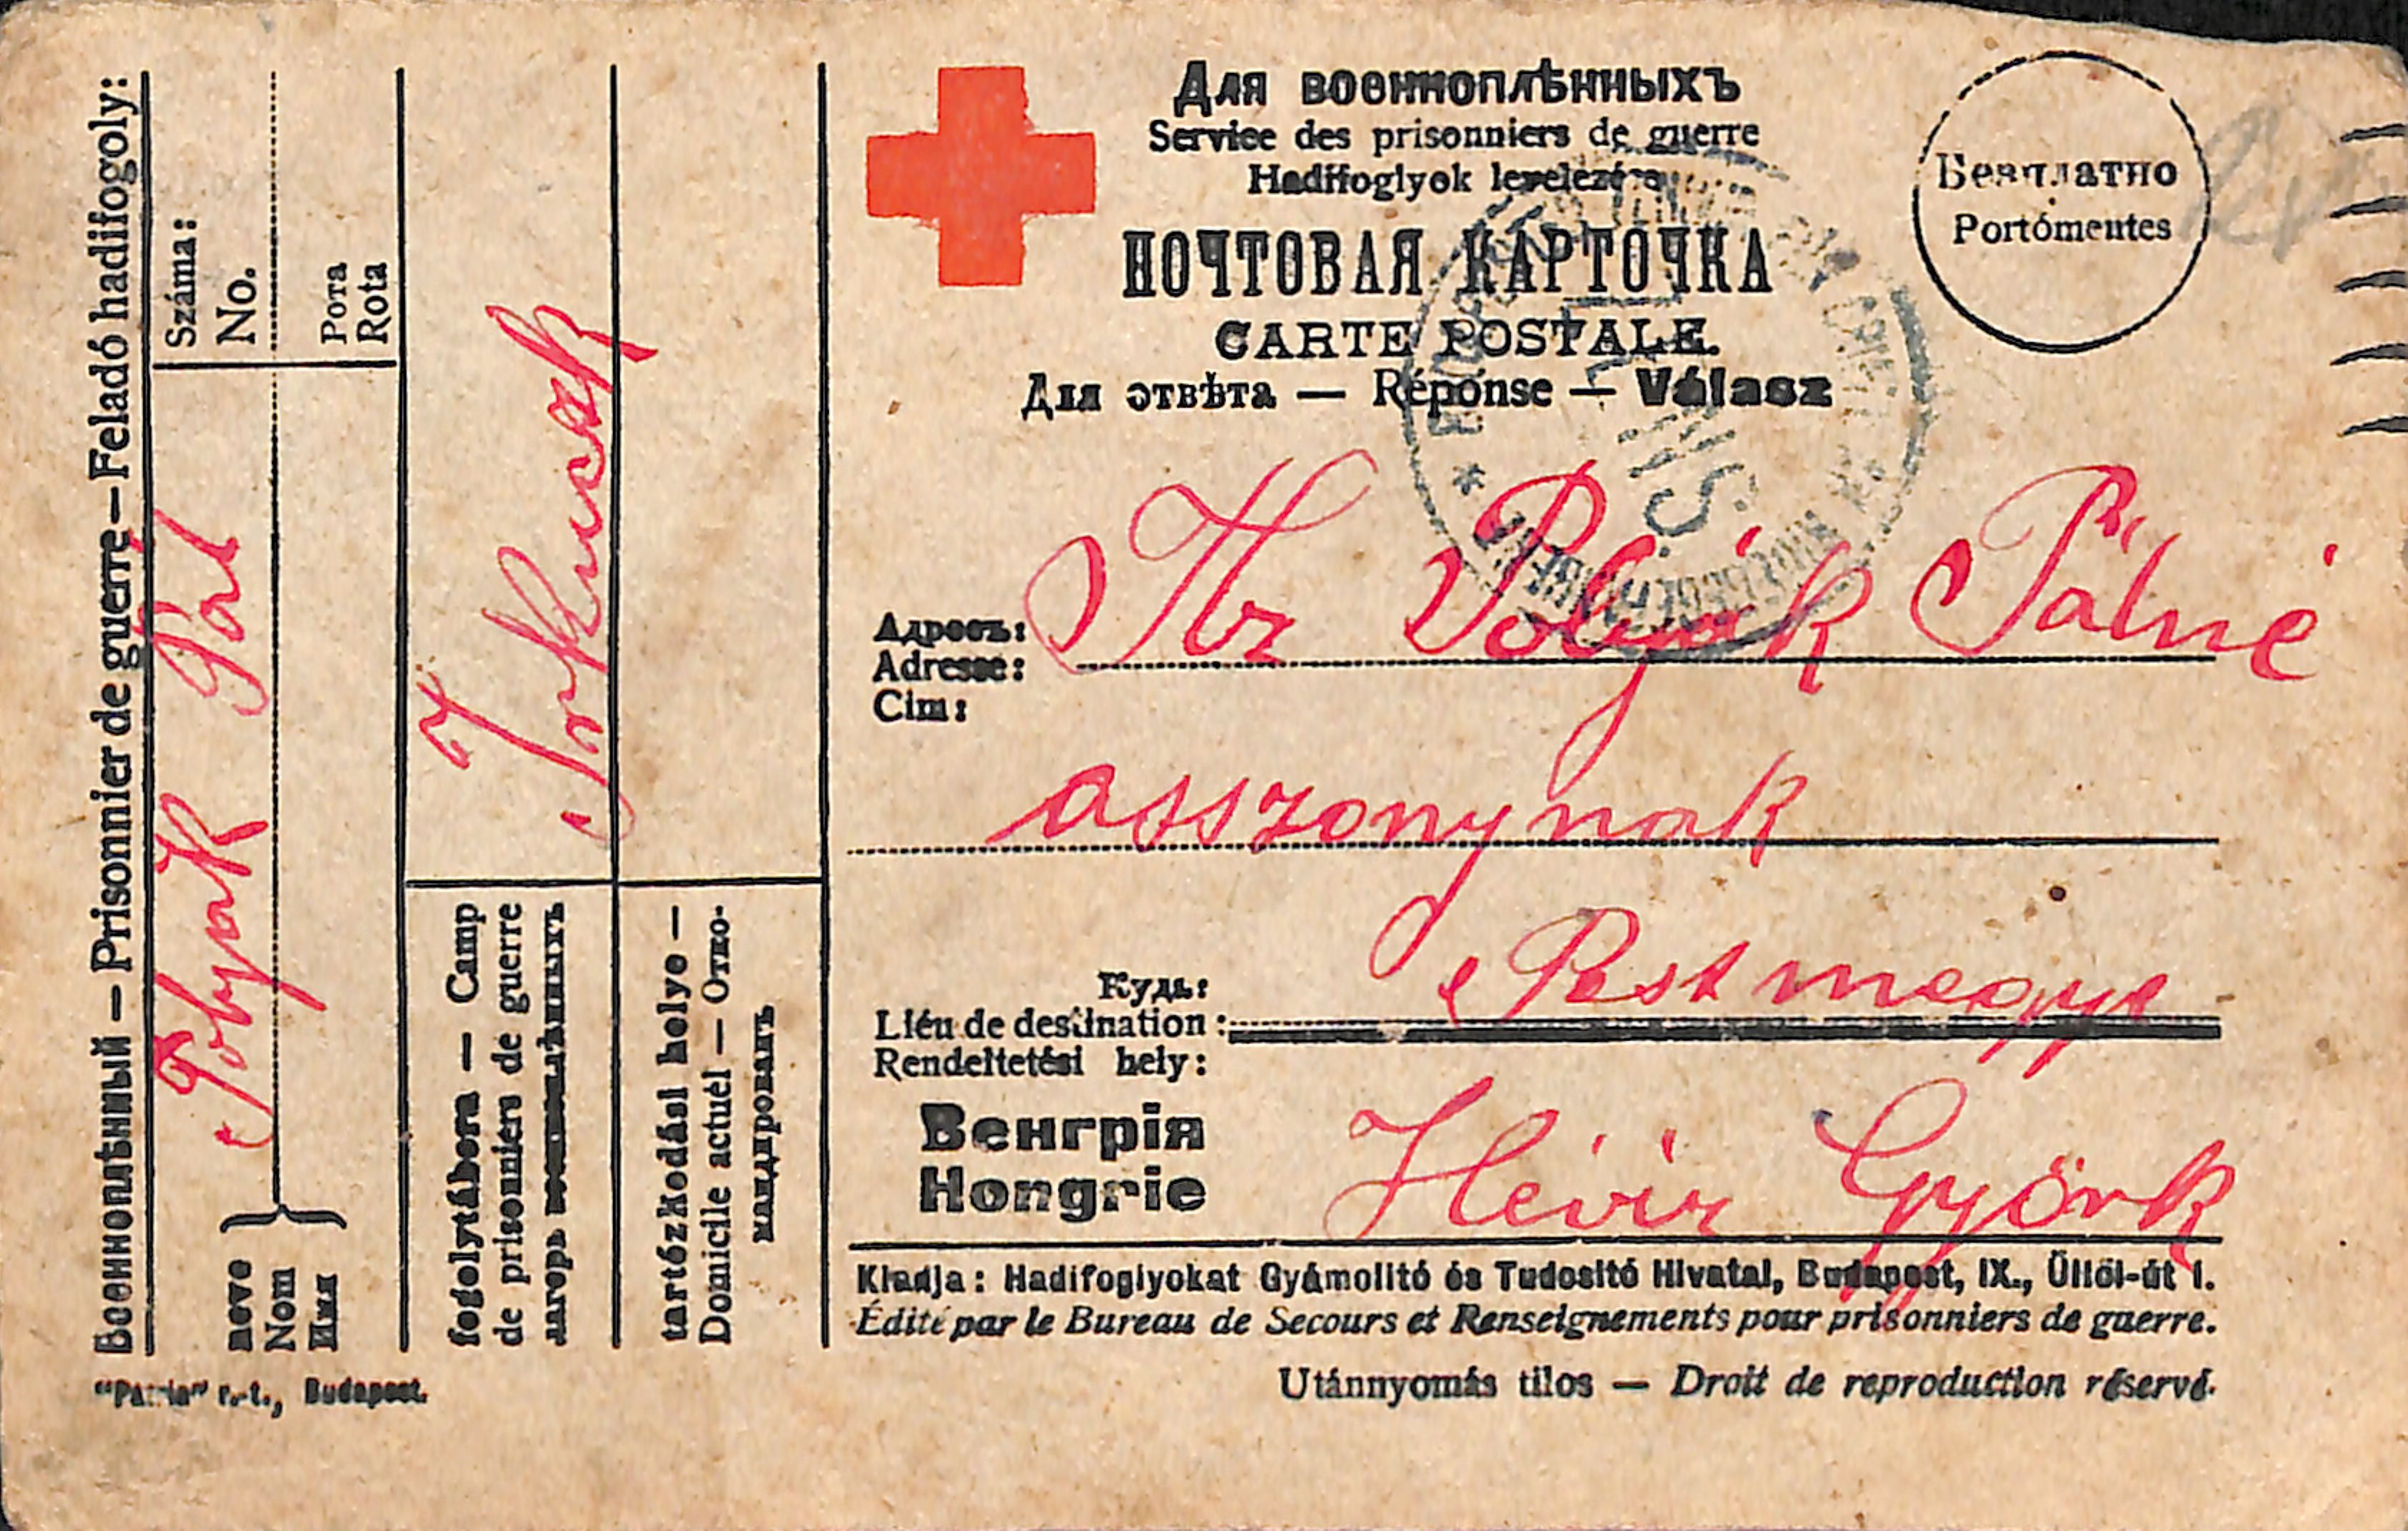 Военноплѣнный — Prisonnier de guerre — Feladó hadifogoly:
Száma:
No.
Рота
Rota
Polyák Pál
neve
Nom
Имя
Irkuczk
fogolytábora — Camp
de prisonniers de guerre
лагерь военноплѣнныхъ
tartózkodási helye —
Domicile actuel — Отко-
мандрованъ
"Patria" r.-t., Budapest.
Для военноплѣнныхъ
Service des prisonniers de guerre
Hadifoglyok levelezése
ПОЧТОВАЯ КАРТОЧКА
CARTE POSTALE.
Для отвѣта — Réponse — Válasz
Безплатно
Portómentes
Адресъ:
Adresse:
Cim:
Polyák Pálné
asszonynak
Куда:
Liéu de destination:
Rendeltetési hely:
Pestmegye
Венгрія
Hongrie
Hévíz Györk
Kiadja: Hadifoglyokat Gyámolitó és Tudositó Hivatal, Budapest, IX., Üllöi-út 1.
Édité par le Bureau de Secours et Renseignements pour prisonniers de guerre.
Utánnyomás tilos — Droit de reproduction réservé.